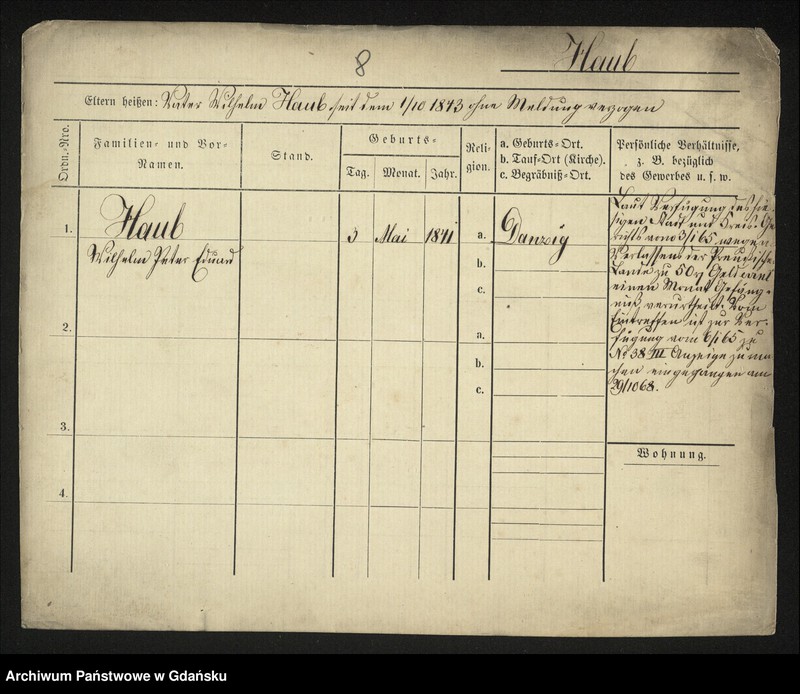 8
Haub
Eltern heißen: Vater Wilhelm Haub, seit dem 1/10 1843 ohne Meldung verzogen
Ordn.-Nro.
Familien- und Vor-
Namen.
Stand.
Geburts-
Tag. Monat. Jahr.
Reli-
gion.
a. Geburts-Ort.
b. Tauf-Ort (Kirche).
c. Begräbniß-Ort.
Persönliche Verhältnisse,
z. B. bezüglich
des Gewerbes u. s. w.
1. Haub 3 Mai 1841 a. Danzig
Wilhelm Peter Eduard
b.
c.
2. a.
b.
c.
3.
4.
Laut Verfügung des hie-
sigen Stadt und Kreis-Ge-
richts vom 3/1 65 wegen
Verlassens der Preußischen
Lande zu 50 Geld
einen Monat Gefäng-
niß verurtheilt. Vom
Eintreffen ist zur Ver-
fügung vom 6/1 65 zu
No 38 III Anzeige zu ma-
chen eingegangen am
29/10 68.
Wohnung.
Archiwum Państwowe w Gdańsku